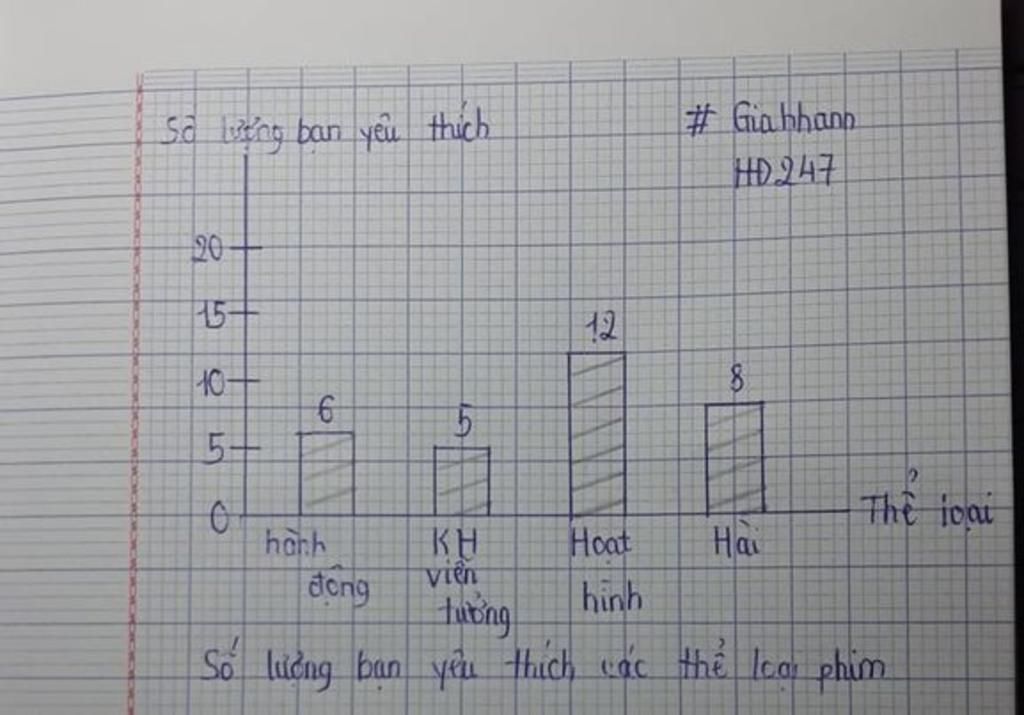 Số lượng bạn yêu thích
# Giakhanh
HD247
20
15
10
5
0
6
5
12
8
hành động
KH viễn tưởng
Hoạt hình
Hài
Thể loại
Số lượng bạn yêu thích các thể loại phim